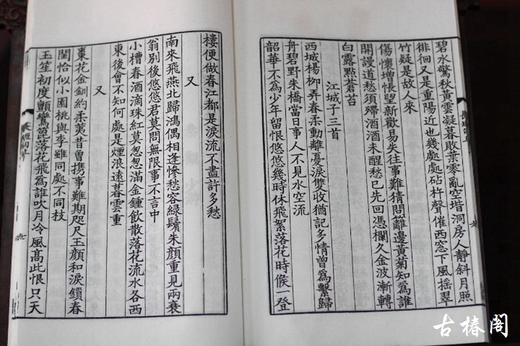 碧水驚秋黃雲凝暮敗葉零亂空堦洞房人靜斜月照
徘徊又是重陽近也幾處處砧杵聲催西窓下風搖翠
竹疑是故人來
傷懷增悵望新歡易失往事難猜問籬邊黃菊知為誰
開謾道愁須殢酒酒未醒愁已先回憑欄久金波漸轉
白露點蒼苔
江城子三首
西城楊柳弄春柔動離憂淚難收猶記多情曾為繫歸
舟碧野朱橋當日事人不見水空流
韶華不為少年留恨悠悠幾時休飛絮落花時候一登
樓便做春江都是淚流不盡許多愁
又
南來飛燕北歸鴻偶相逢慘愁容綠鬢朱顏重見兩衰
翁別後悠悠君莫問無限事不言中
小槽春酒滴珠紅莫怱怱滿金鍾飲散落花流水各西
東後會不知何處是煙浪遠暮雲重
又
棗花金釧約柔荑昔曾攜事難期咫尺玉顏和淚鎖春
閨恰似小園桃與李雖同處不同枝
玉笙初度顫鸞篦落花飛為誰吹月冷風高此恨只天
古椿閣